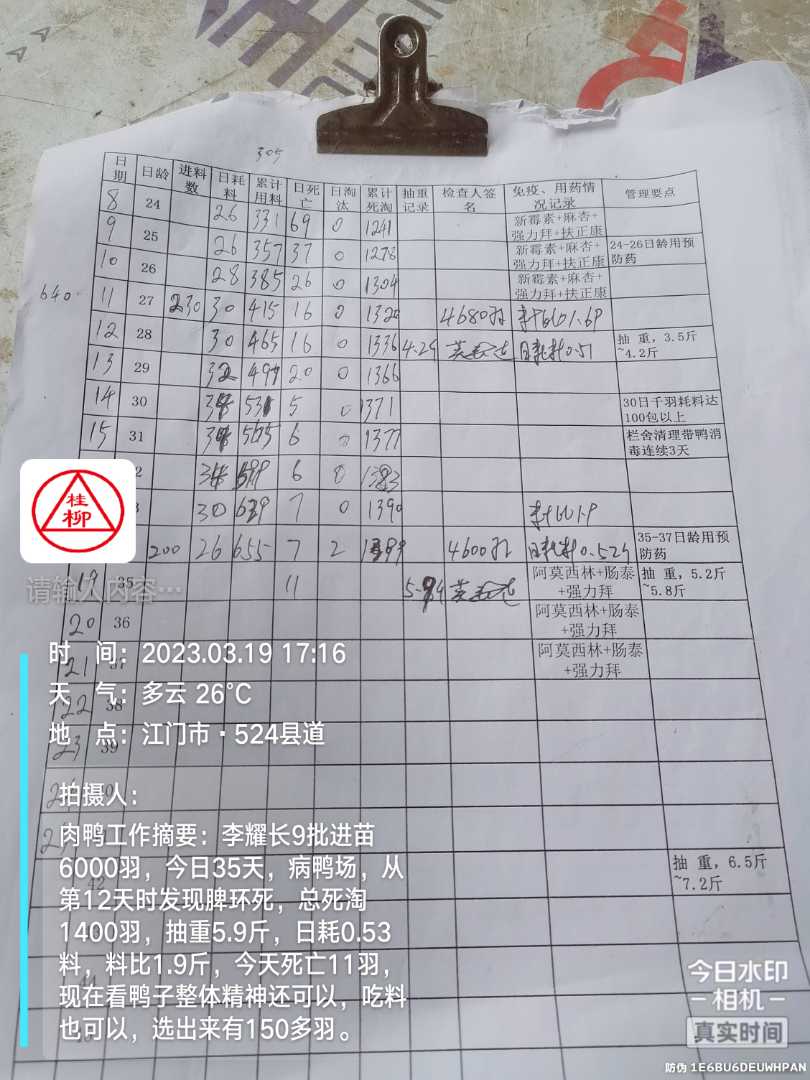 305
日期 日龄 进料数 日耗料 累计用料 日死亡 日淘汰 累计死淘 抽重记录 检查人签名 免疫、用药情况记录 管理要点
8 24 26 331 69 0 1241 新霉素+麻杏+强力拜+扶正康
9 25 26 357 37 0 1278 新霉素+麻杏+强力拜+扶正康 24-26日龄用预防药
10 26 28 385 26 0 1304 新霉素+麻杏+强力拜+扶正康
640
11 27 230 30 415 16 0 1320 4680羽
12 28 30 465 16 0 1336 4.2斤 日耗料0.51 抽重，3.5斤~4.2斤
13 29 32 497 20 0 1366
14 30 34 531 5 0 1371 30日千羽耗料达100包以上
15 31 34 565 6 0 1377 栏舍清理带鸭消毒连续3天
2 34 599 6 0 1383
30 629 7 0 1390
200 26 655 7 2 1399 4600羽 日耗料0.52斤 35-37日龄用预防药
19 35 11 阿莫西林+肠泰+强力拜 抽重，5.2斤~5.8斤
20 36 阿莫西林+肠泰+强力拜
21 阿莫西林+肠泰+强力拜
22 38
23 39
抽重，6.5斤~7.2斤
桂柳
请输入内容…
时 间：2023.03.19 17:16
天 气：多云 26°C
地 点：江门市·524县道
拍摄人：
肉鸭工作摘要：李耀长9批进苗
6000羽，今日35天，病鸭场，从
第12天时发现脾坏死，总死淘
1400羽，抽重5.9斤，日耗0.53
料，料比1.9斤，今天死亡11羽，
现在看鸭子整体精神还可以，吃料
也可以，选出来有150多羽。
今日水印
相机
真实时间
防伪 1E6BU6DEUWHPAN